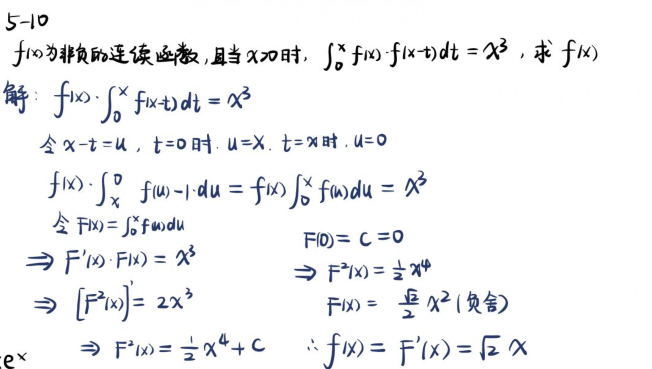 5-10
f(x)为非负的连续函数,且当x>0时, ∫₀ˣ f(x)·f(x-t)dt = x³ , 求 f(x)
解: f(x)·∫₀ˣ f(x-t)dt = x³
令 x-t=u , t=0时. u=x. t=x时. u=0
f(x)·∫ₓ⁰ f(u)-1·du = f(x)∫₀ˣ f(u)du = x³
令 F(x)=∫₀ˣ f(u)du
⇒ F'(x)·F(x) = x³
⇒ [F²(x)]' = 2x³
⇒ F²(x) = ½x⁴+C
F(0) = C = 0
⇒ F²(x) = ½x⁴
F(x) = √2/2 x² (负舍)
∴ f(x) = F'(x) = √2 x
eˣ